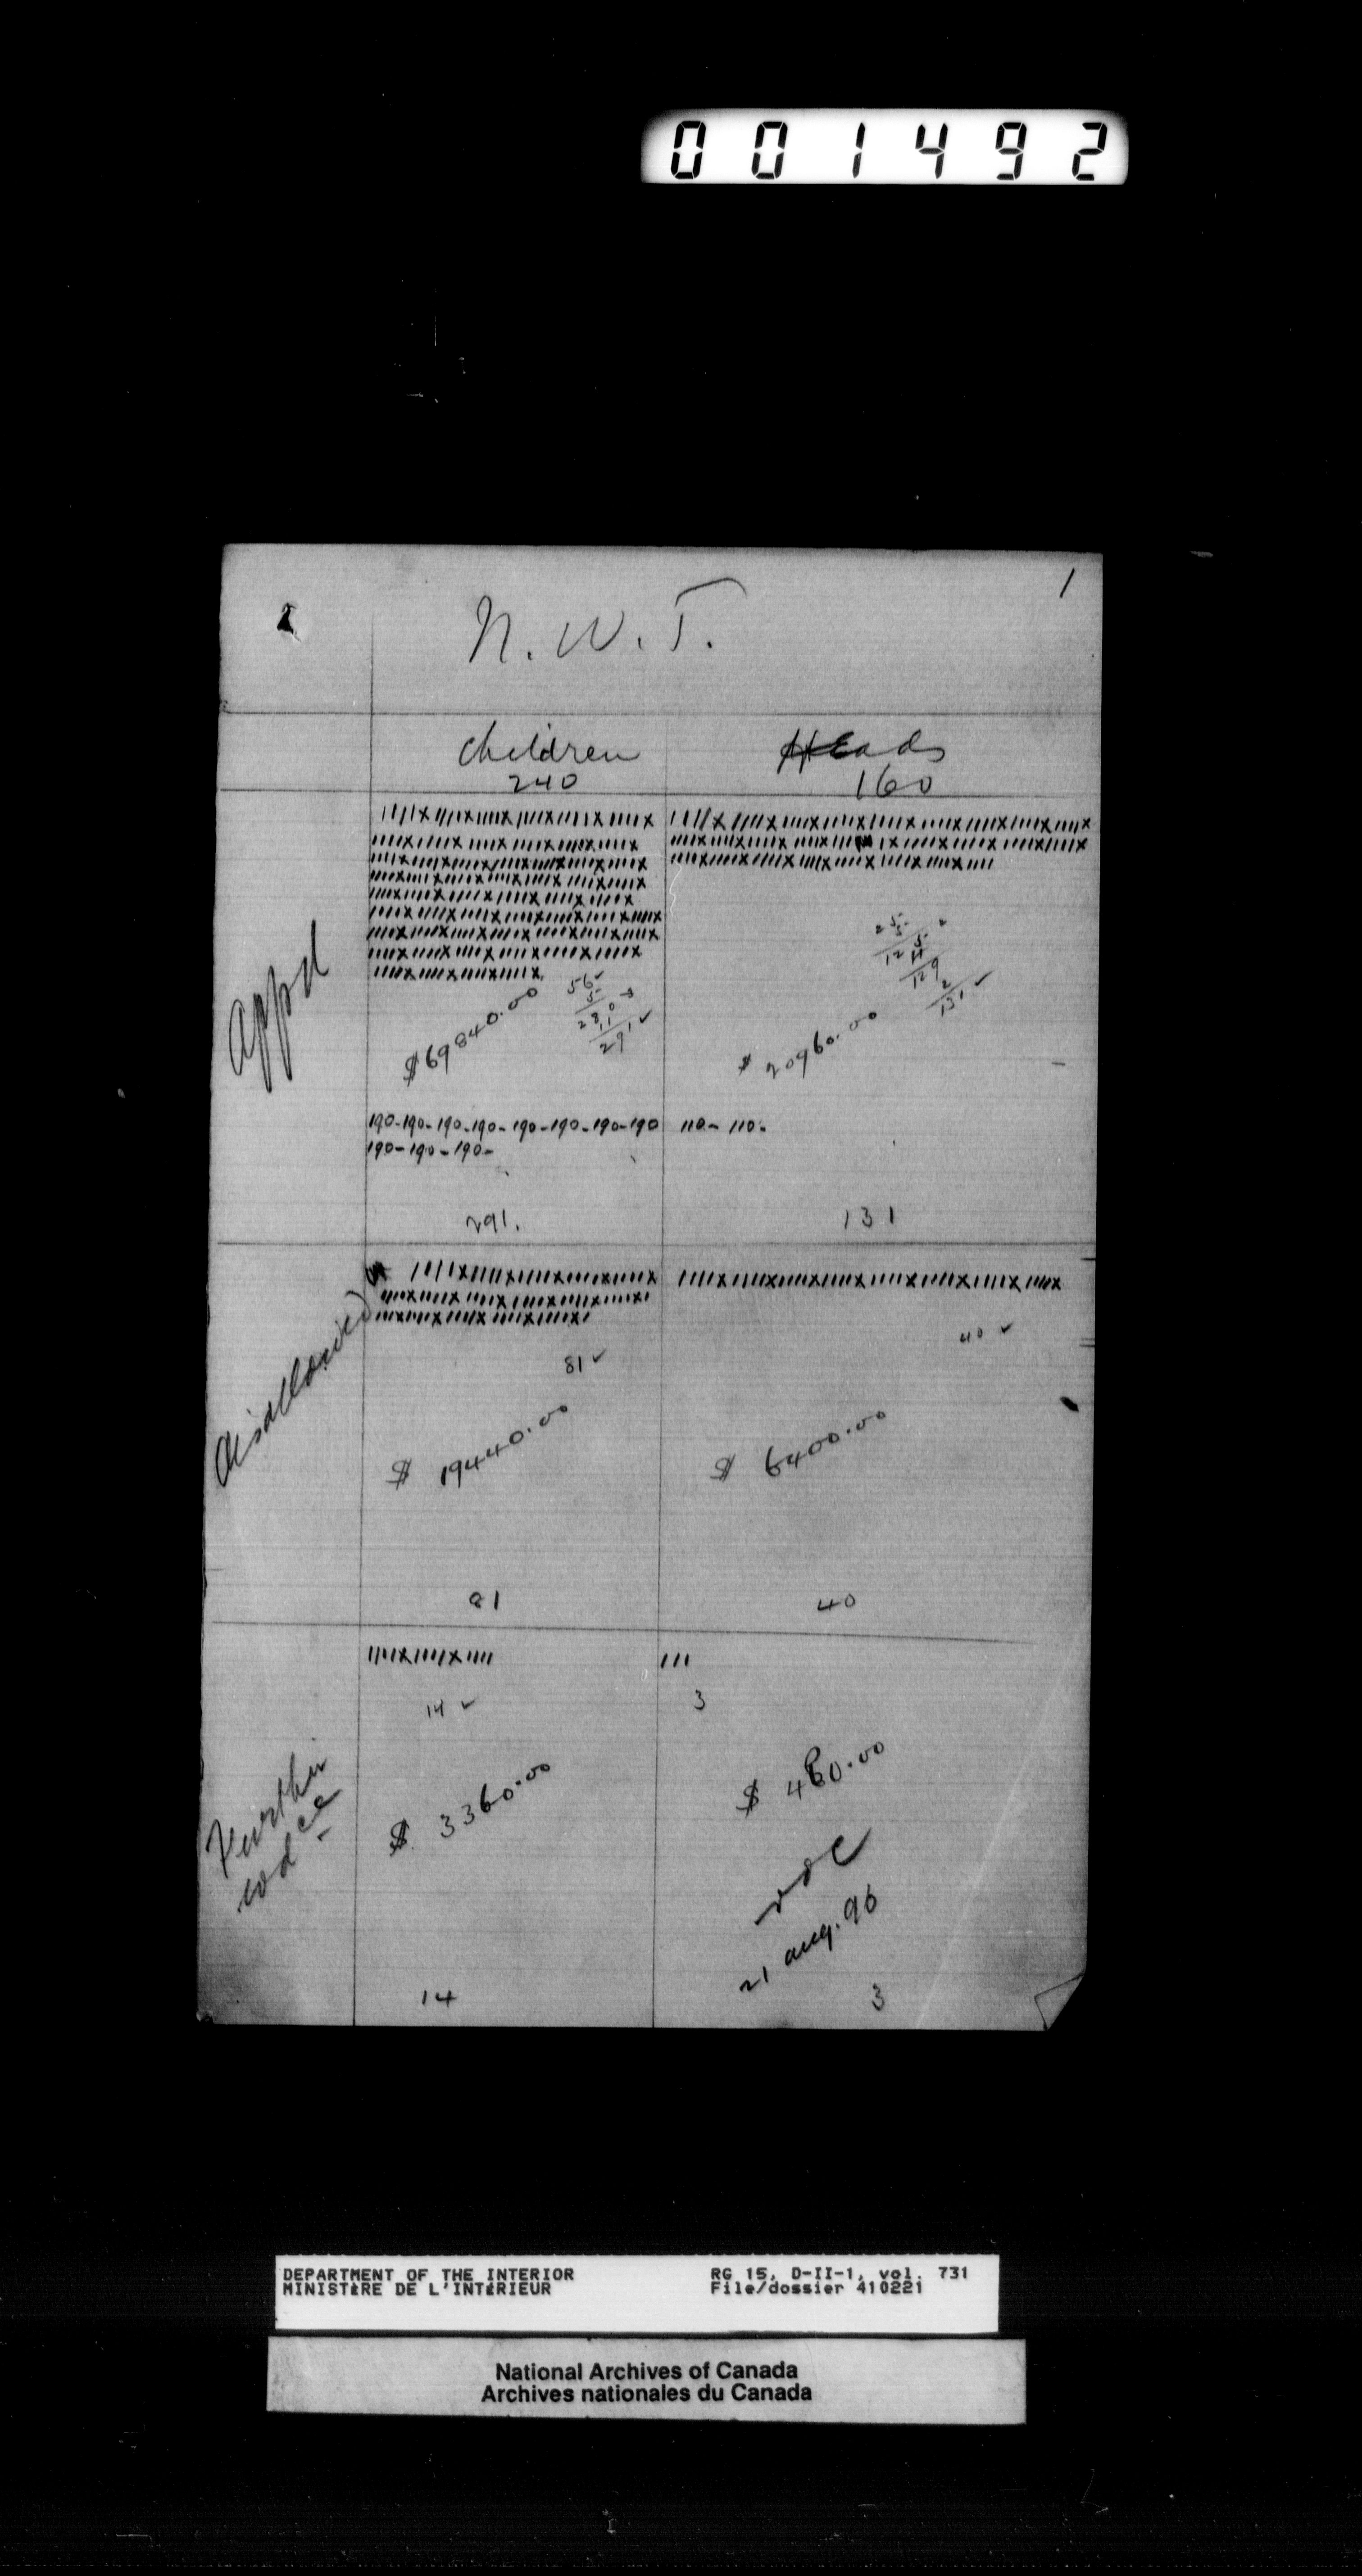 001492
1
N. W. T.
Children Heads
240 160
Appd
56
5
280
11
291
25
5
125
4
129
2
131
$69840.00 $20960.00
190-190-190-190-190-190-190-190 110- 110-
190-190-190-
291. 131
Disallowed
81 40
$ 19440.00 $ 6400.00
81 40
Further
14 3
$ 3360.00 $ 480.00
21 Aug. 96
14 3
DEPARTMENT OF THE INTERIOR RG 15, D-II-1, vol. 731
MINISTÈRE DE L'INTÉRIEUR File/dossier 410221
National Archives of Canada
Archives nationales du Canada